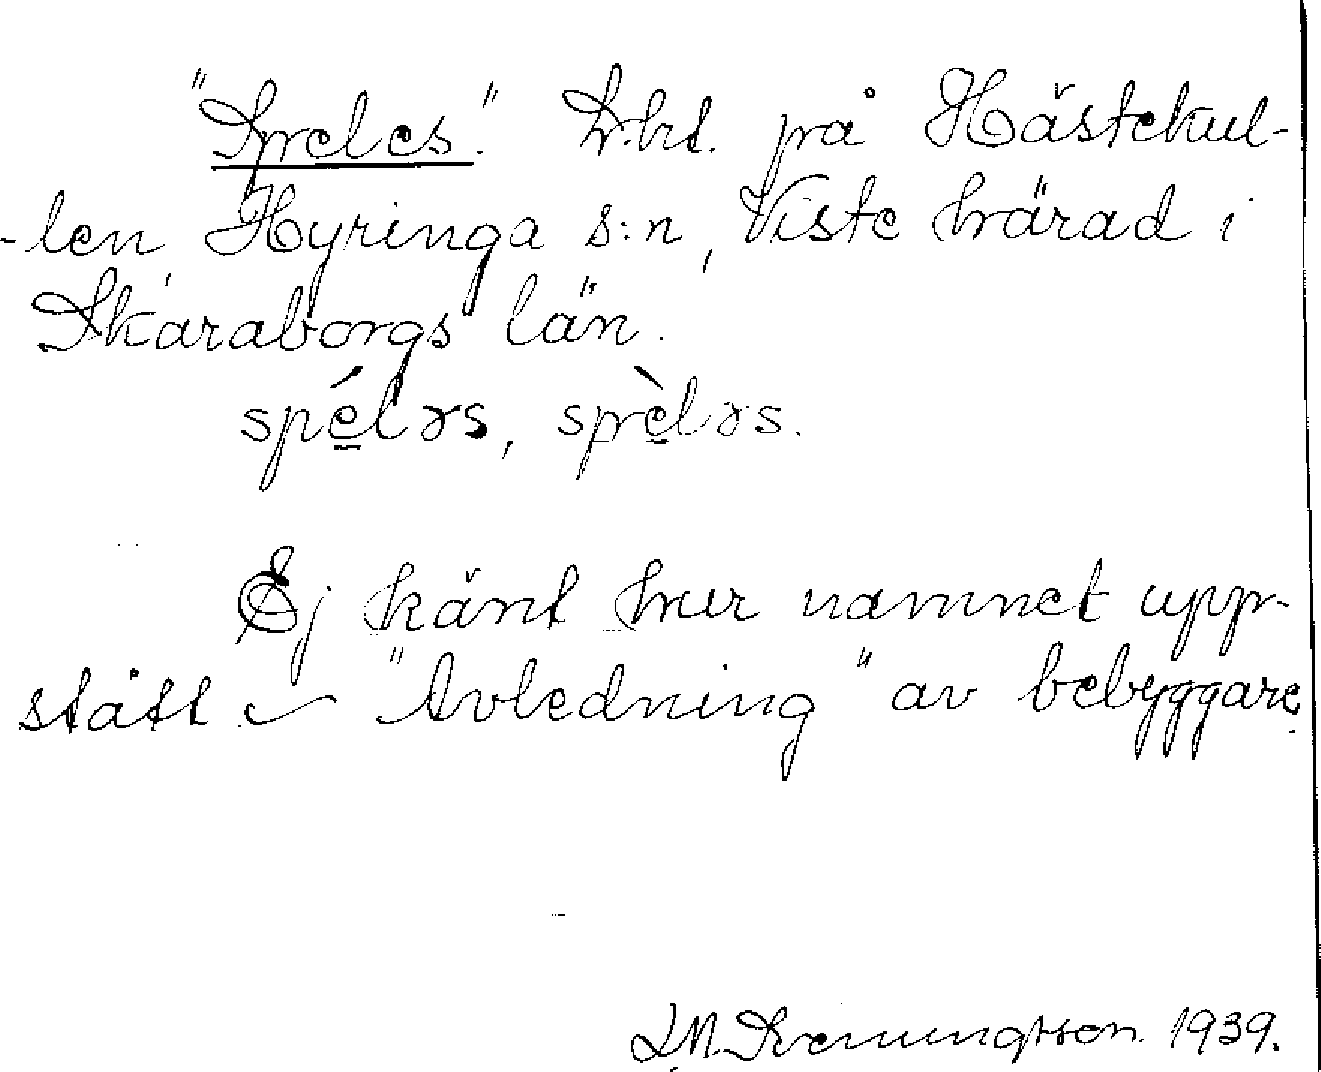 "Speles". Lht. på Hästekul-
-len Hyringa s:n, Viste härad i
Skaraborgs län.
spélɤs, spèlɤs.
Ej känt hur namnet upp-
stått – "Avledning" av bebyggare
1939.